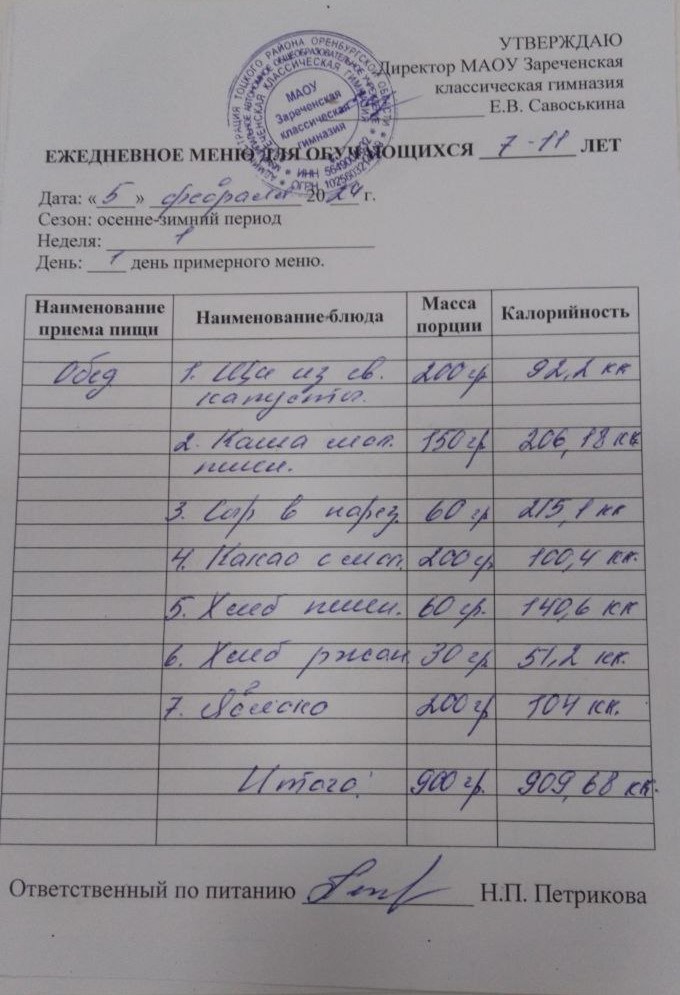 УТВЕРЖДАЮ
Директор МАОУ Зареченская
классическая гимназия
Е.В. Савоськина
МАОУ
Зареченская
классическая
гимназия
ЕЖЕДНЕВНОЕ МЕНЮ ДЛЯ ОБУЧАЮЩИХСЯ 7-11 ЛЕТ
Дата: «5» февраля 2024 г.
Сезон: осенне-зимний период
Неделя: 1
День: 1 день примерного меню.
Наименование приема пищи Наименование блюда Масса порции Калорийность
Обед 1. Щи из св. 200 гр 92,2 кк
капусты.
2. Каша мол. 150 гр 206,18 кк
пшен.
3. Сыр в нарез. 60 гр 215,1 кк
4. Какао с мол. 200 гр. 100,4 кк.
5. Хлеб пшен. 60 гр. 140,6 кк
6. Хлеб ржан. 30 гр 51,2 кк.
7. Яблоко 200 гр 104 кк.
Итого: 900 гр. 909,68 кк.
Ответственный по питанию Н.П. Петрикова